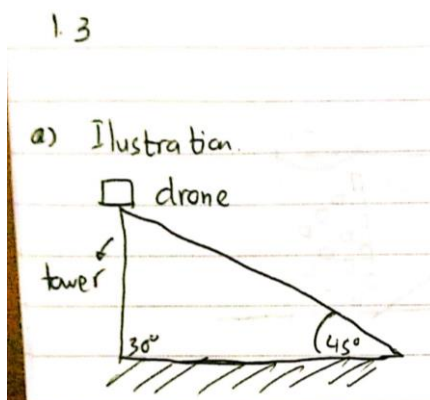 1.3
a) Ilustration.
drone
tower
30°
45°